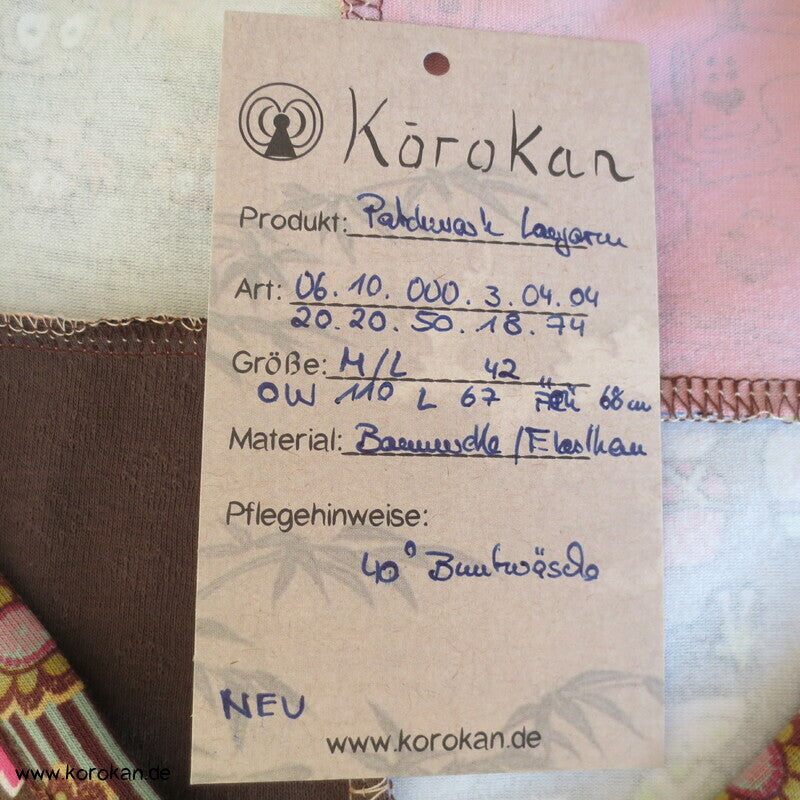 Kōrokan
Produkt: Patchwork Langarm
Art: 06.10.000.3.04.04
20.20.50.18.74
Größe: M/L 42
OW 110 L 67 68 cm
Material: Baumwolle/Elasthan
Pflegehinweise:
40° Buntwäsche
NEU
www.korokan.de
www.korokan.de